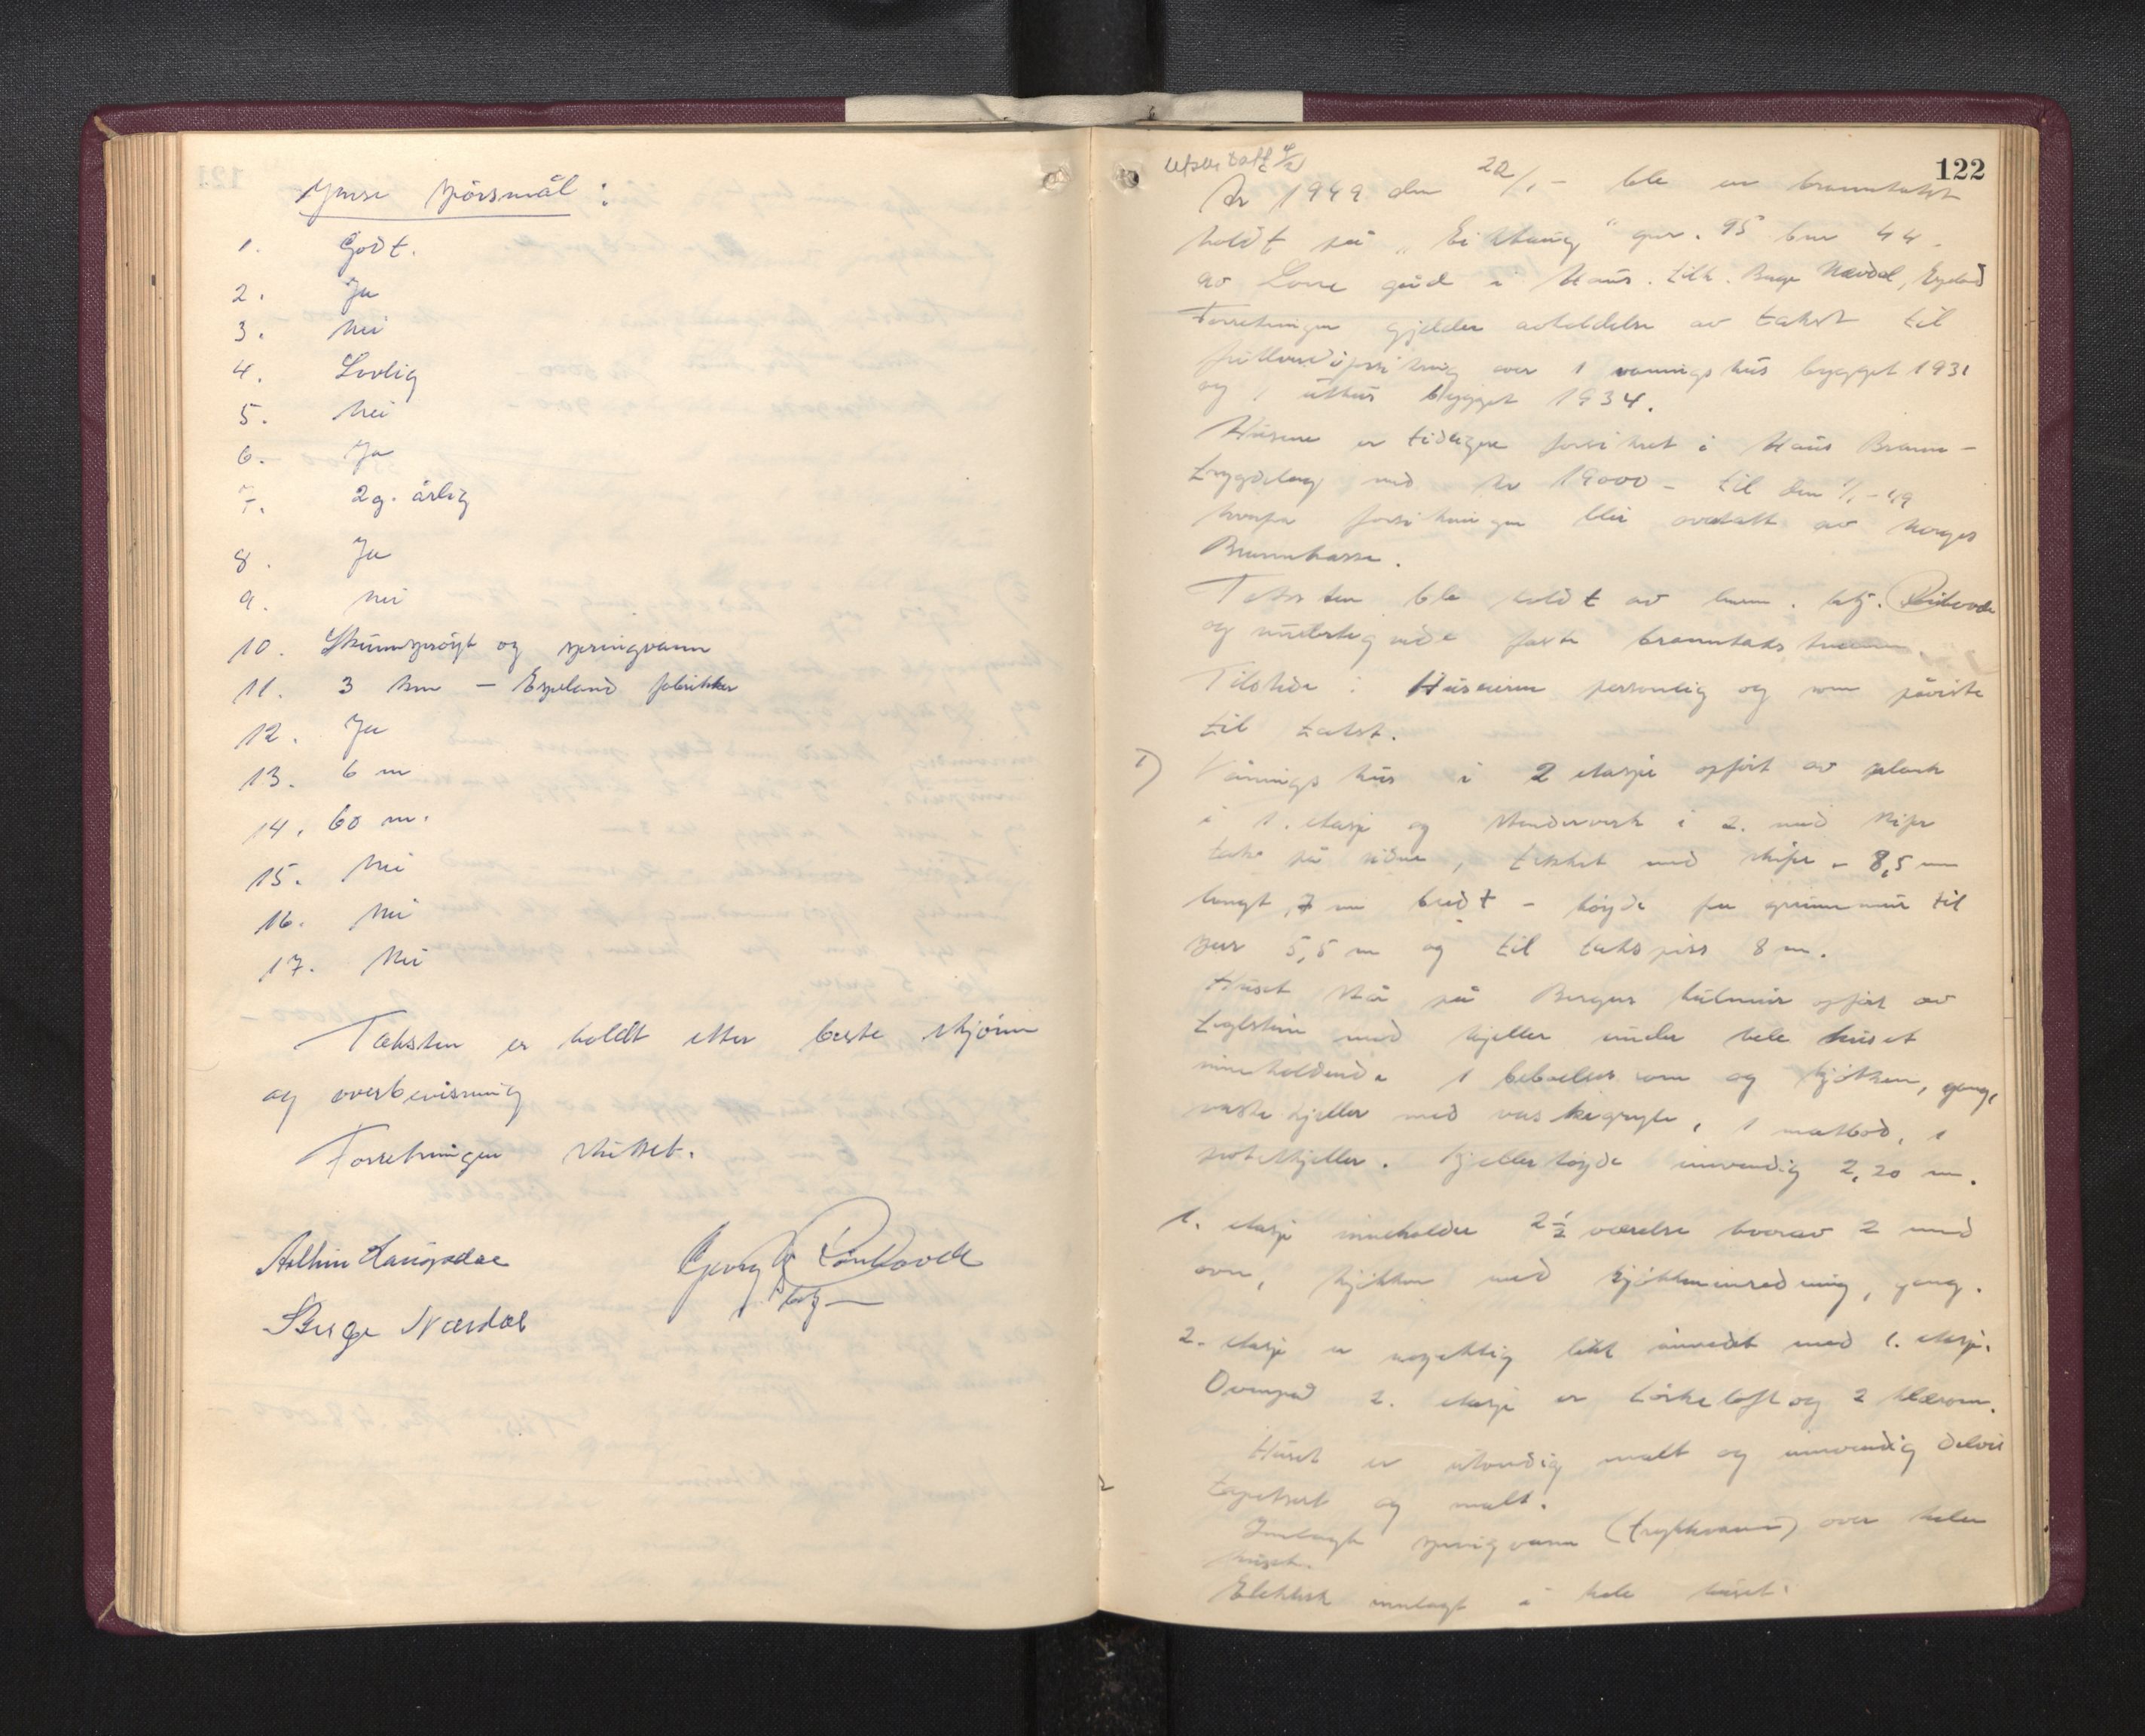 Ymse spörsmål :
1. Godt.
2. Ja
3. Nei
4. Lovlig
5. Nei
6. Ja
7. 2 g. årlig
8. Ja
9. Nei
10. Skumsprøyt og springvann
11. 3 km – Espeland fabrikker
12. Ja
13. 6 m
14. 60 m.
15. Nei
16. Nei
17. Nei
Taksten er holdt etter beste skjønn
og overbevisning
Forretningen sluttet.
Georg
Birge Nævdal
122
År 1949 den 20/1 – ble en branntakst
holdt på „ " gnr. 95 bnr 44
av gård i Haus. tilh. Birge Nævdal,
Forretningen gjelder avholdelse av takst til
fullverdiforsikring over 1 vånings hus bygget 1931
og 1 uthus bygget 1934.
Husene er tidligere forsikret i Haus Brann-
trygdelag med kr 19000 – til den 1/1 – 49
hvorfra forsikringen blir overtatt av Norges
Brannkasse.
Taksten ble holdt av
og undertegnede faste branntakstmenn.
Tilstede : Huseieren personlig og som påviste
til takst.
1) Vånings hus i 2 etasje opført av plank
i 1. etasje og stenderverk i 2. med skifer
tak på sidene, tekket med skifer – 8,5 m
langt, 7 m bredt – høyde fra grunnmur til
gur 5,5 m og til takspiss 8 m.
Huset står på Bergens hulmur opført av
teglstein med kjeller under hele huset
inneholdende 1 beboelses rom og kjøkken, gang,
vaskekjeller med vaskegryte, 1 matbod, 1
potetkjeller. Kjellerhøyde innvendig 2,20 m.
1. etasje inneholder 2½ værelse hvorav 2 med
ovn, kjøkken med kjøkkeninredning, gang.
2. etasje er nøyaktig likt innredet med 1. etasje.
Ovenpå 2. etasje er tørkeloft og 2 klærom.
Huset er utvendig malt og innvendig delvis
tapetsert og malt.
Innlagt springvann (trykkvann) over hele
huset.
Elektrisk innlagt i hele huset.